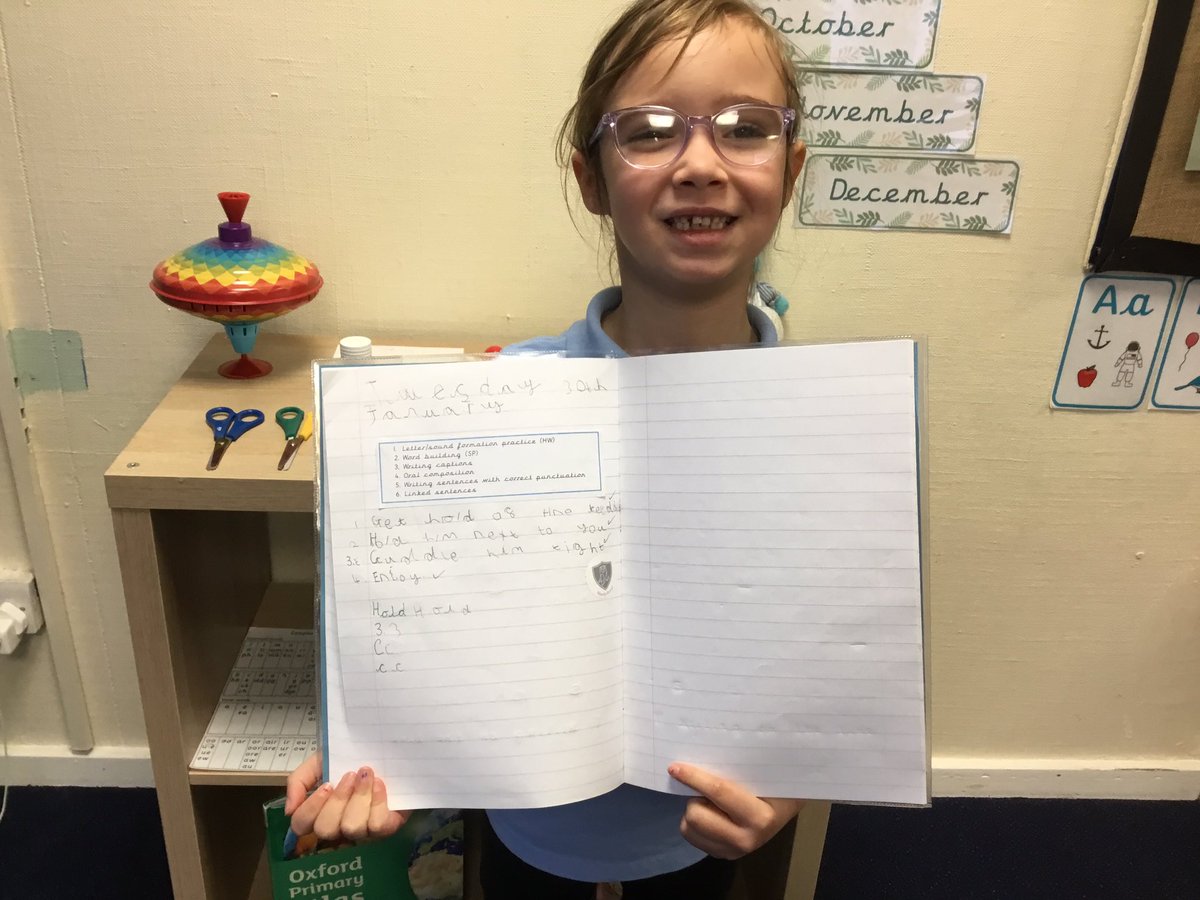 October
November
December
Aa
Tuesday 30th
January
1. Letter/sound formation practice (HW)
2. Word building (SP)
3. Writing captions
4. Oral composition
5. Writing sentences with correct punctuation
6. Linked sentences
1. Get hold of the
2. Hold him next to you
3. Cuddle him tight
4. Enjoy
Hold Hold
3 3
Cc
c c
Oxford
Primary